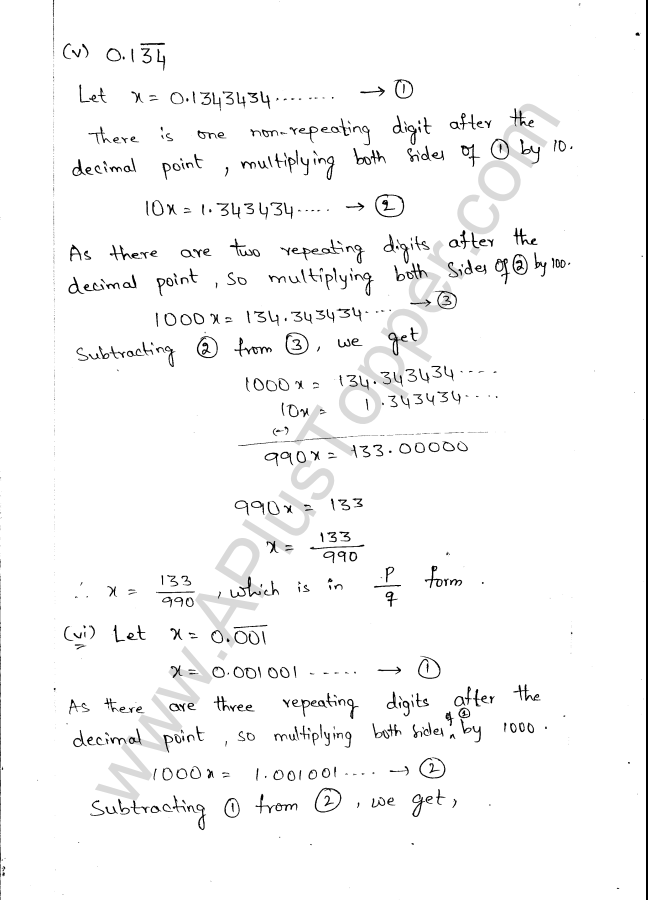 (v) 0.1̅3̅4̅
Let x = 0.1343434........ → ①
There is one non-repeating digit after the
decimal point, multiplying both sides of ① by 10.
10x = 1.343434..... → ②
As there are two repeating digits after the
decimal point, so multiplying both sides of ② by 100.
1000x = 134.343434.... → ③
Subtracting ② from ③, we get
1000x = 134.343434....
10x = 1.343434....
(-)
990x = 133.00000
990x = 133
x = 133/990
∴ x = 133/990, which is in P/q form.
(vi) Let x = 0.0̅0̅1̅
x = 0.001001...... → ①
As there are three repeating digits after the
decimal point, so multiplying both sides of ① by 1000.
1000x = 1.001001.... → ②
Subtracting ① from ②, we get,
www.APlusTopper.com